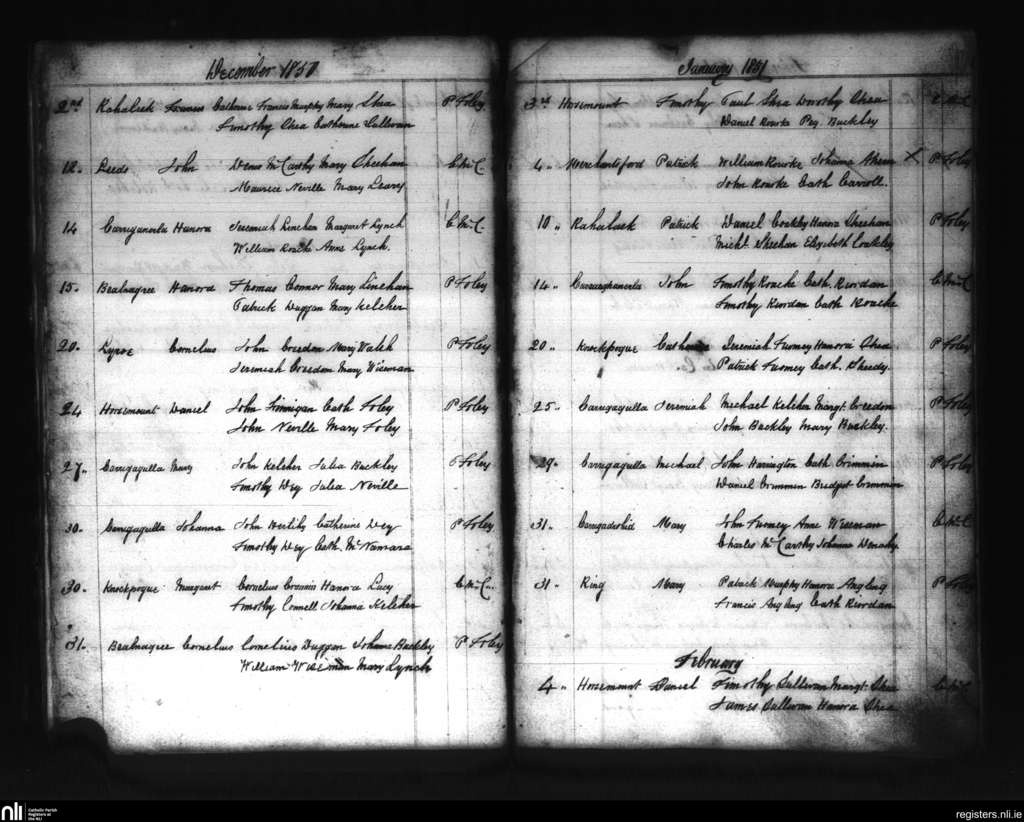 December 1850
2nd Rahalisk Frances Catherine Francis Murphy Mary Shea P Foley
Timothy Shea Catherine Sullivan
12. Leeds John Denis McCarthy Mary Sheehan C. McC.
Maurice Neville Mary Leary
14 Carriganerla Hanora Jeremiah Linehan Margaret Lynch C McC.
William Roache Anne Lynch.
15. Bealnagree Hanora Thomas Connor Mary Linehan P Foley
Patrick Duggan Mary Kelcher
20. Lyroe Cornelius John Creedon Mary Walsh P Foley
Jeremiah Creedon Mary Wiseman
24 Horsemount Daniel John Finnigan Cath Foley P Foley
John Neville Mary Foley
27. Carrigagulla Mary John Kelcher Julia Buckley P Foley
Timothy Dey Julia Neville
30. Carrigagulla Johanna John Hertily Catherine Dey P Foley
Timothy Dey Cath. McNamara
30. Knockpogue Margaret Cornelius Hanora Lucy C. McC.
Timothy Connell Johanna Kelcher
31. Bealnagree Cornelius Cornelius Duggan Johanna Buckley P Foley
William Wiseman Mary Lynch
January 1851
3rd Horsemount Timothy Paul Shea Dorothy Shea C McC
Daniel Rourke Peg. Buckley
4 " Merchantsford Patrick William Rourke Johanna X P Foley
John Rourke Cath Carroll.
10 " Rahalisk Patrick Daniel Coakley Hanora Sheehan P Foley
Michl Sheehan Elizabeth Coakley
14 " John Timothy Roache Cath. Riordan C McC
Timothy Riordan Cath Roache
20 " Knockpogue Catherine Jeremiah Twomey Hanora Shea P Foley
Patrick Twomey Cath. Sheedy.
25 " Carrigagulla Jeremiah Michael Kelcher Margt. Creedon P Foley
John Buckley Mary Buckley.
29. Carrigagulla Michael John Harrington Cath Crimmin P Foley
Daniel Crimmen Bridget Crimmen
31. Mary John Twomey Anne Wiseman C McC
Charles McCarthy Johanna Denahy.
31 " Ring Mary Patrick Murphy Hanora Angling P Foley
Francis Angling Cath Riordan
February
4 " Horsemount Daniel Timothy Sullivan Margt. Shea C McC
James Sullivan Hanora Shea
nli
Catholic Parish
Registers at
the NLI
registers.nli.ie